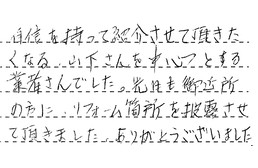 自信を持って紹介させて頂きた
くなる、山下さんを中心とする
業者さんでした。先日も御近所
の方に、リフォーム箇所を披露させ
て頂きました。ありがとうございました